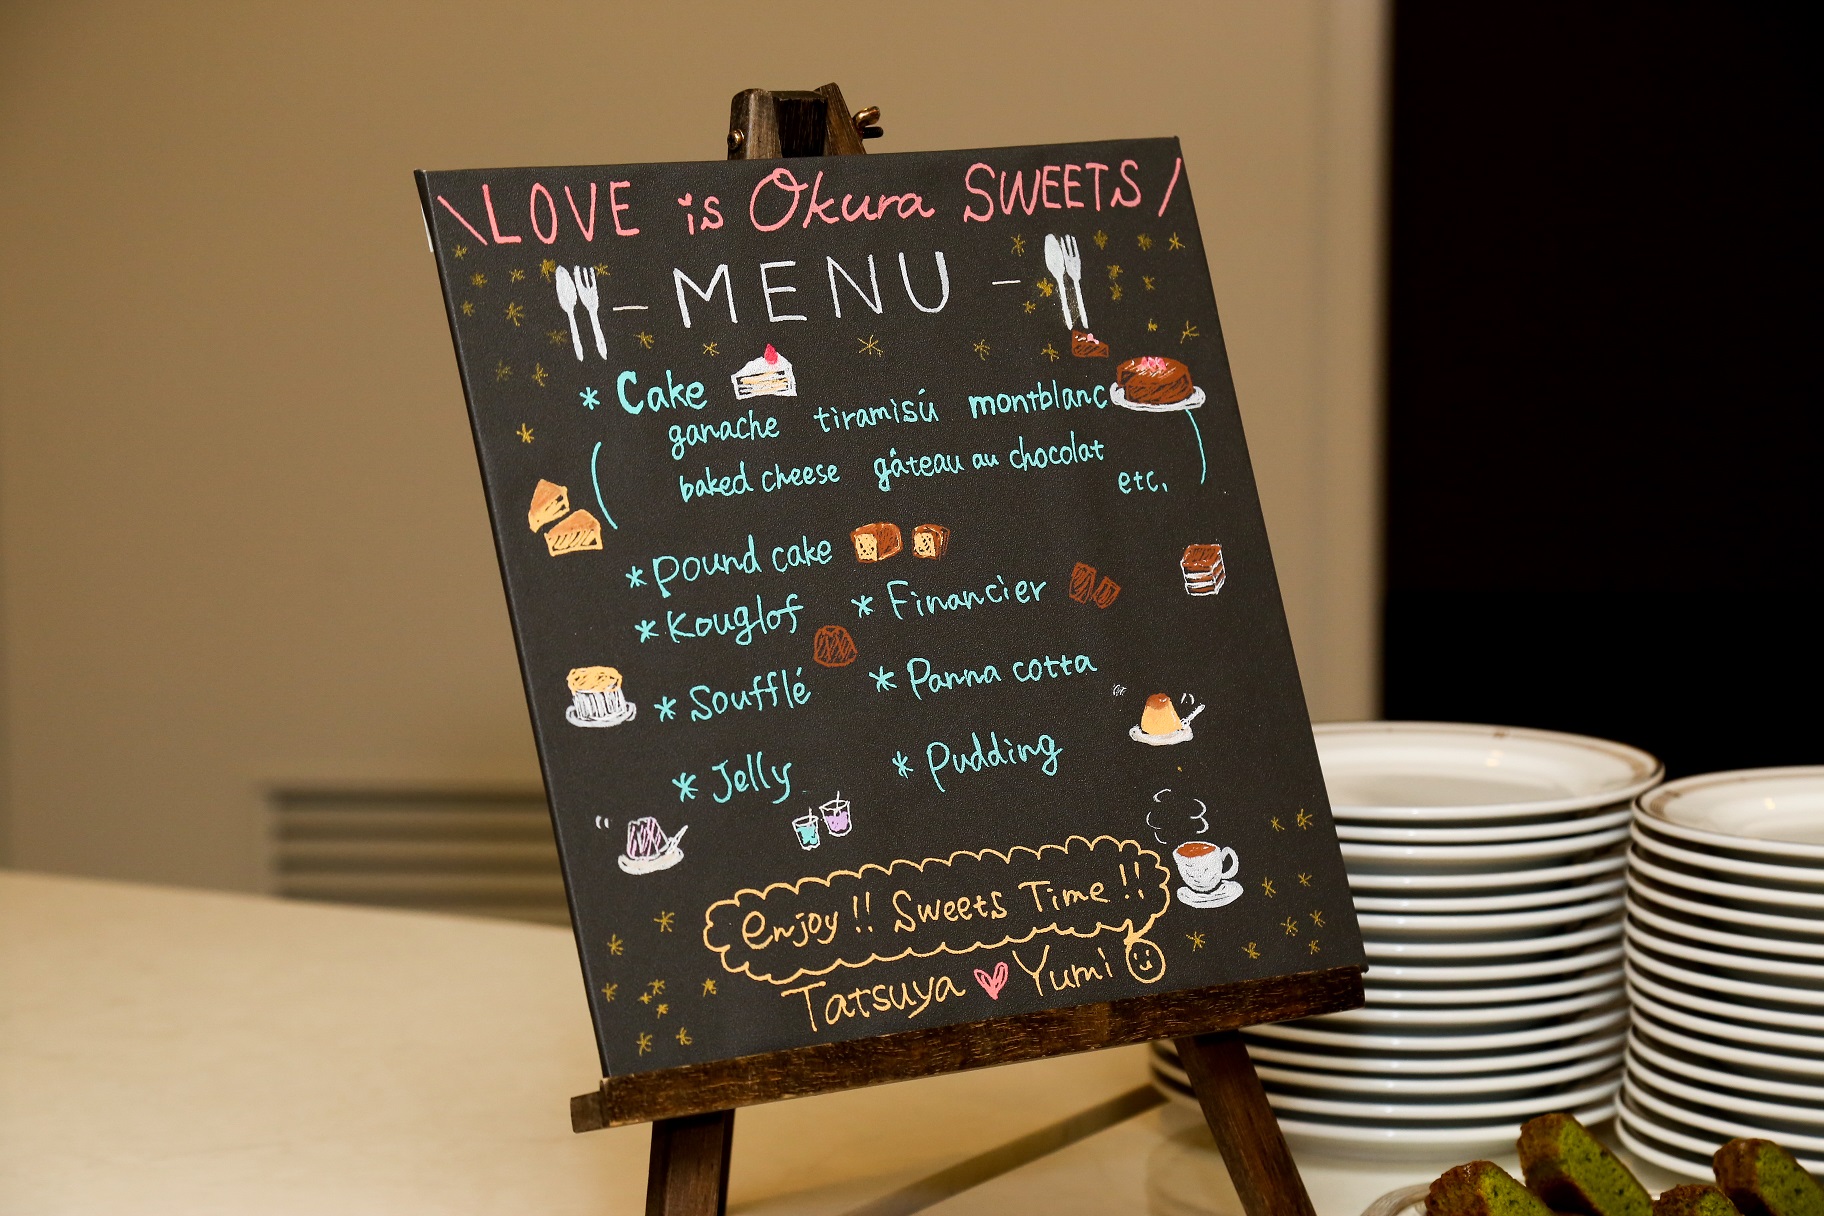 \LOVE is Okura SWEETS/
-MENU-
* Cake
( ganache tiramisú montblanc
baked cheese gâteau au chocolat etc. )
* Pound cake
* Kouglof * Financier
* Soufflé * Panna cotta
* Jelly * Pudding
enjoy!! Sweets Time!!
Tatsuya ♥ Yumi ☺